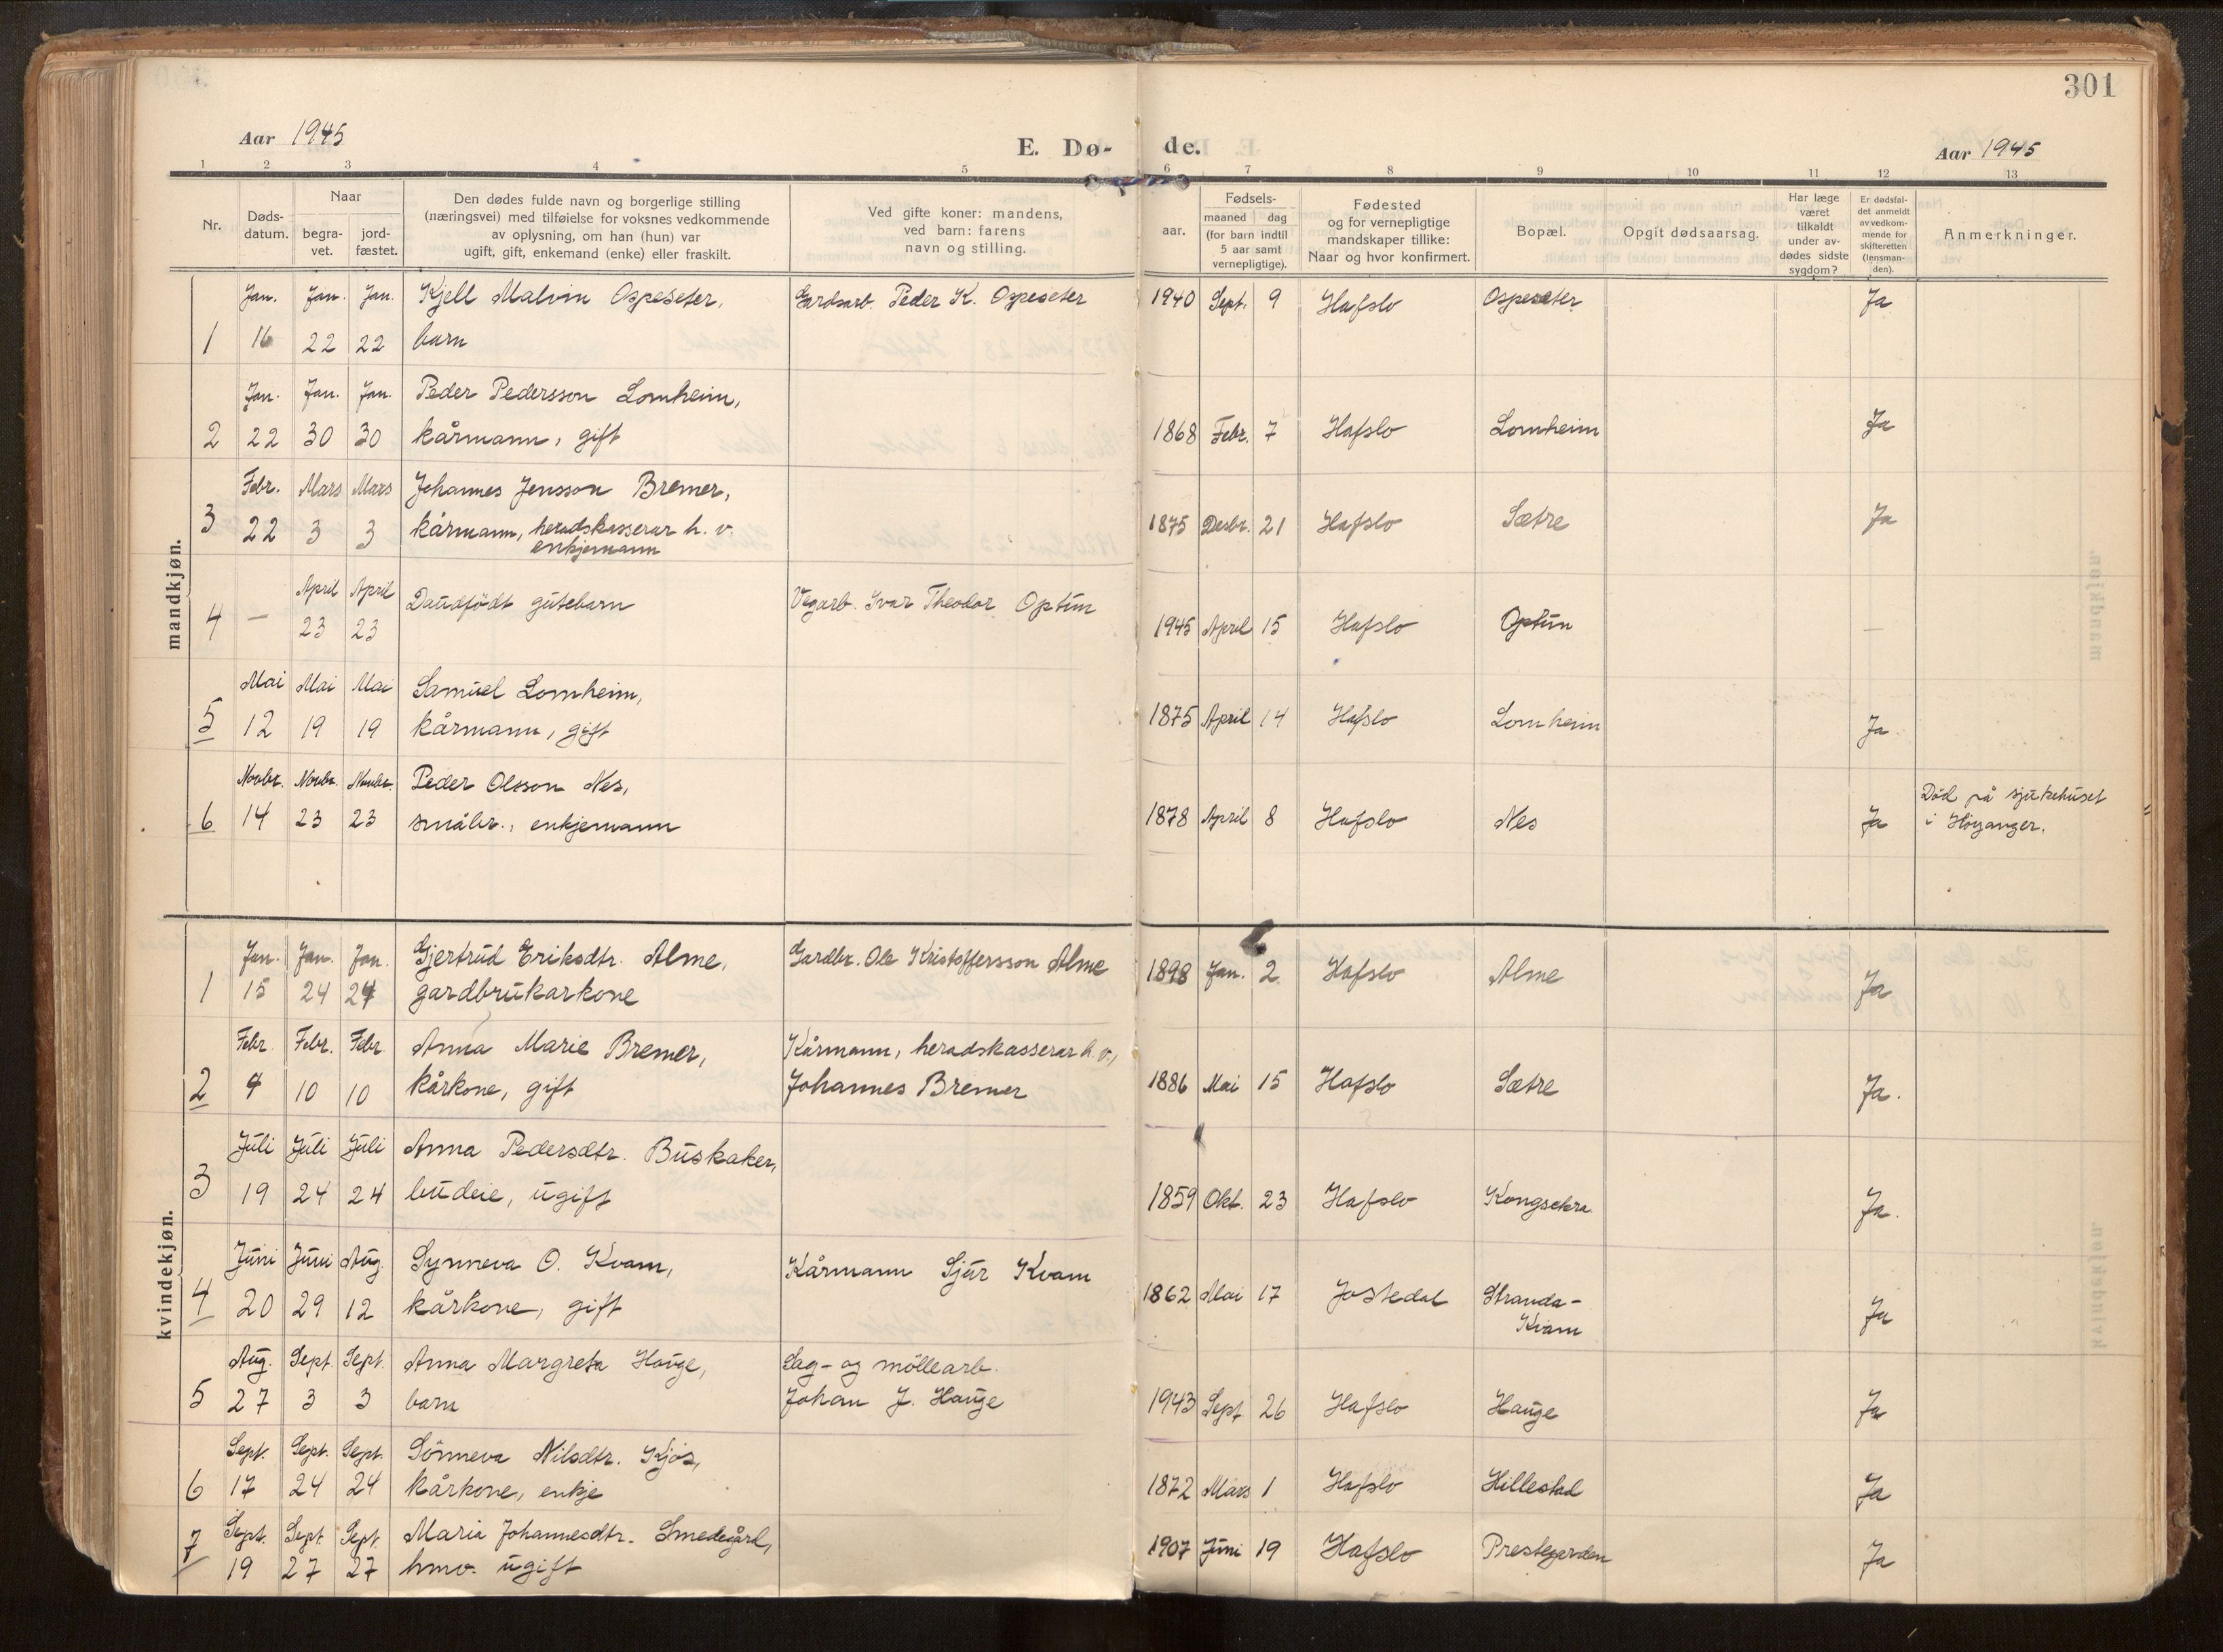 301
Aar 1945
E. Dø-
de.
Aar 1945
1 2 3 4 5 6 7 8 9 10 11 12 13
Nr.
Døds-
datum.
Naar
begra-
vet.
jord-
fæstet.
Den dødes fulde navn og borgerlige stilling
(næringsvei) med tilføielse for voksnes vedkommende
av oplysning, om han (hun) var
ugift, gift, enkemand (enke) eller fraskilt.
Ved gifte koner: mandens,
ved barn: farens
navn og stilling.
Fødsels-
aar.
maaned dag
(for barn indtil
5 aar samt
vernepligtige).
Fødested
og for vernepligtige
mandskaper tillike:
Naar og hvor konfirmert.
Bopæl.
Opgit dødsaarsag.
Har læge
været
tilkaldt
under av-
dødes sidste
sygdom?
Er dødsfal-
det anmeldt
av vedkom-
mende for
skifteretten
(lensman-
den).
Anmerkninger.
mandkjøn.
Jan. Jan. Jan. Kjell Malvin Ospeseter, Gardsarb. Peder K. Ospeseter 1940 Sept. 9 Hafslo Ospeseter Ja
1 16 22 22 barn
Jan. Jan. Jan. Peder Pedersson Lomheim,
2 22 30 30 kårmann, gift 1868 Febr. 7 Hafslo Lomheim Ja
Febr. Mars Mars Johannes Jensson Bremer,
3 22 3 3 kårmann, heradskasserar h. v. 1875 Desbr. 21 Hafslo Sætre Ja
enkjemann
April April Daudfödt gutebarn Vegarb. Ivar Theodor Optun
4 — 23 23 1945 April 15 Hafslo Optun —
Mai Mai Mai Samuel Lomheim,
5 12 19 19 kårmann, gift 1875 April 14 Hafslo Lomheim Ja
Novbr. Novbr. Novbr. Peder Olsson Nes, Död på sjukehuset
6 14 23 23 småbr., enkjemann 1878 April 8 Hafslo Nes Ja i Höyanger.
kvindekjøn.
Jan. Jan. Jan. Gjertrud Eriksdtr. Alme, Gardbr. Ole Kristoffersson Alme 1898 Jan. 2 Hafslo Alme Ja
1 15 24 24 gardbrukarkone
Febr. Febr. Febr. Anna Marie Bremer, Kårmann, heradskasserar h. v.,
2 4 10 10 kårkone, gift Johannes Bremer 1886 Mai 15 Hafslo Sætre Ja.
Juli Juli Juli Anna Pedersdtr. Buskaker,
3 19 24 24 budeie, ugift 1859 Okt. 23 Hafslo Kongsekra Ja.
Juni Juni Aug. Synneva O. Kvam, Kårmann Sjur Kvam
4 20 29 12 kårkone, gift 1862 Mai 17 Jostedal Stranda- Ja
Kvam
Aug. Sept. Sept. Anna Margreta Hauge, Sag- og möllearb.
5 27 3 3 barn Johan J. Hauge 1943 Sept 26 Hafslo Hauge Ja
Sept. Sept. Sept. Sönneva Nilsdtr. Kjos,
6 17 24 24 kårkone, enkje 1872 Mars 1 Hafslo Hillestad Ja
Sept. Sept. Sept. Maria Johannesdtr. Smedegård,
7 19 27 27 hmv. ugift 1907 Juni 19 Hafslo Prestegarden Ja